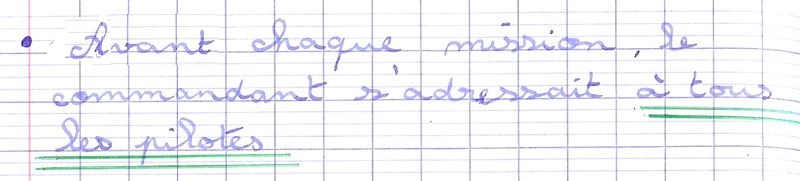 • Avant chaque mission, le
commandant s'adressait à tous
les pilotes